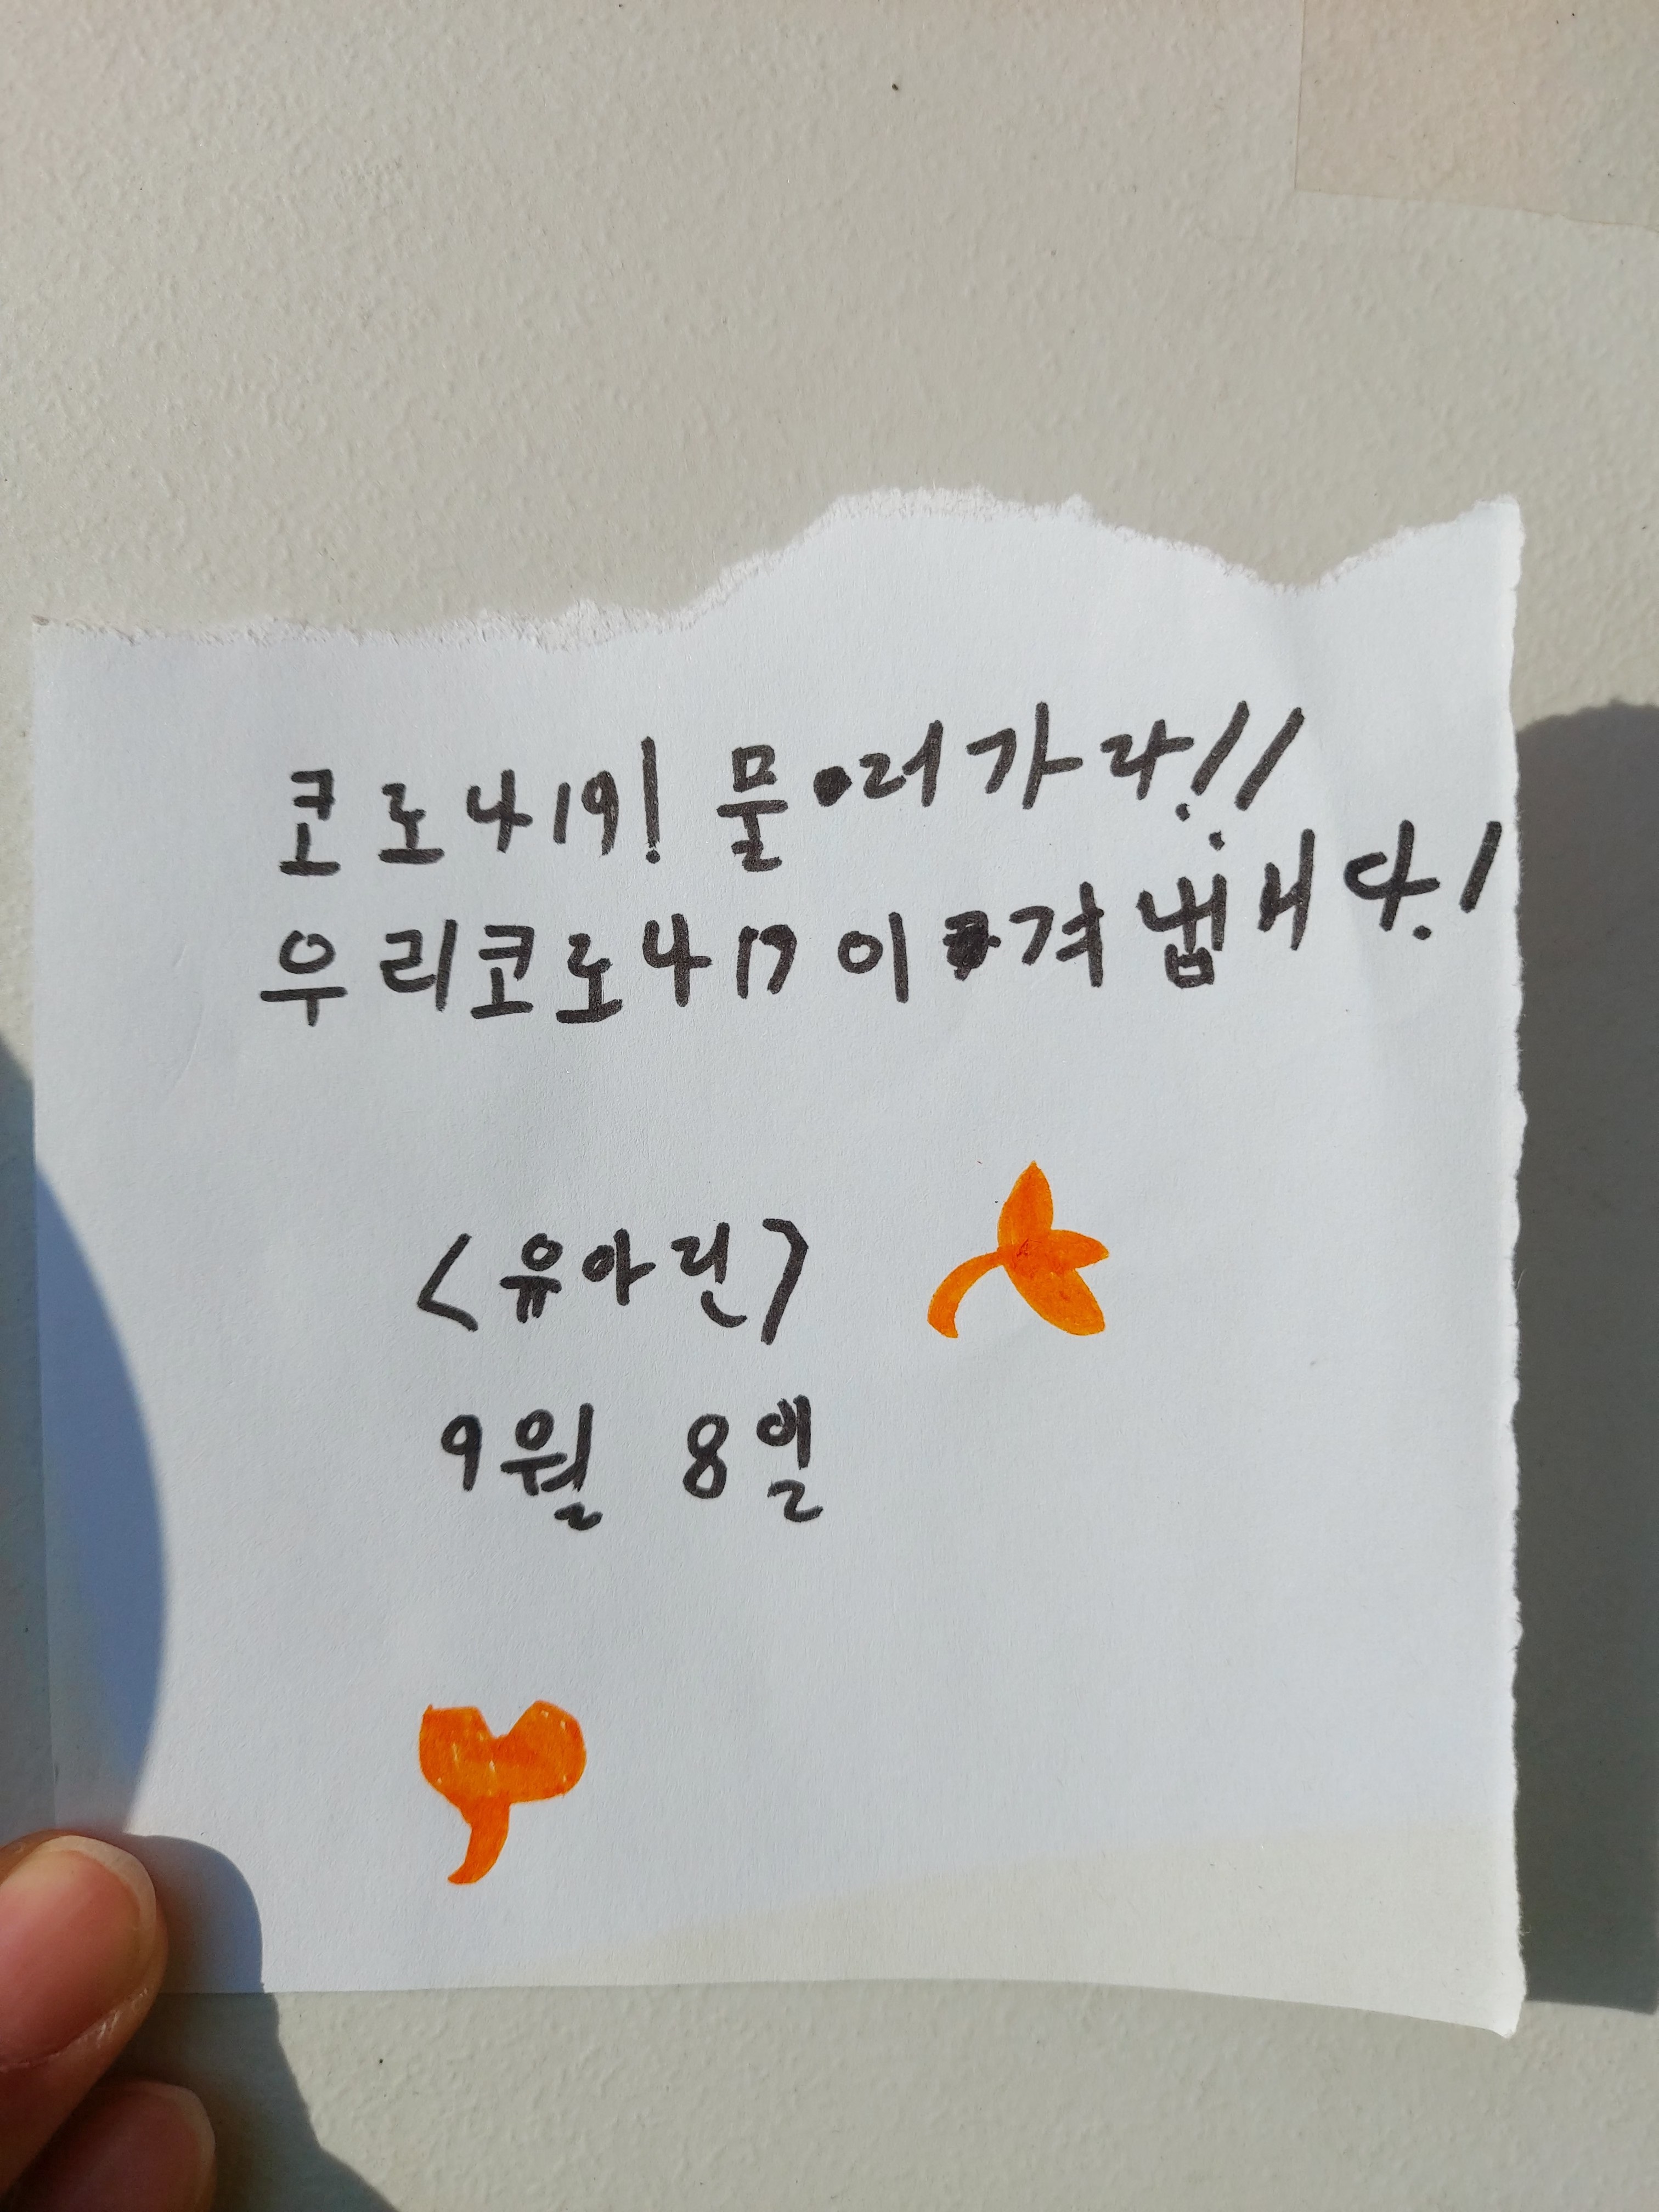 코로나19! 물러가라!!
우리코로나19 이겨냅시다.!
<유아린>
9월 8일